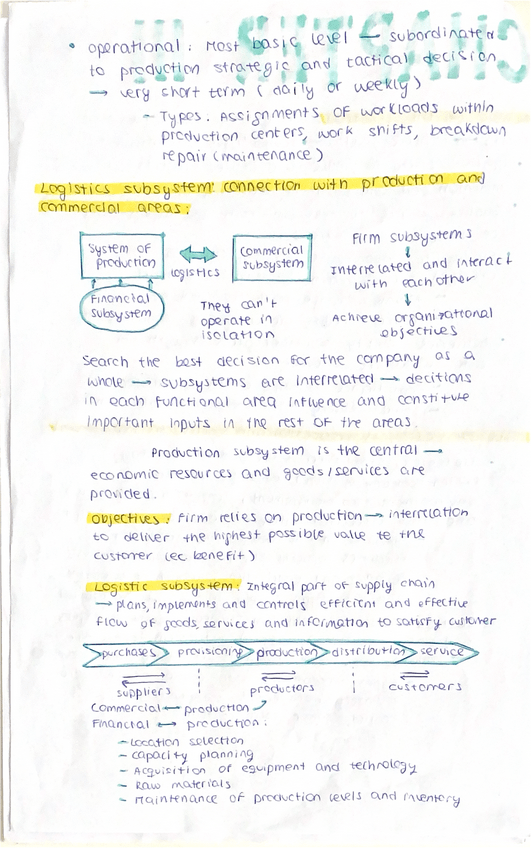 • operational: Most basic level → subordinated
to production strategic and tactical decision
→ very short term (daily or weekly)
~ Types. Assignments of workloads within
production centers, work shifts, breakdown
repair (maintenance)
Logistics subsystem: connection with production and
commercial areas:
System of
Production
logistics
Commercial
subsystem
Financial
subsystem
They can't
operate in
isolation
Firm subsystems
↓
Interrelated and interact
with each other
↓
Achieve organizational
objectives
Search the best decision for the company as a
whole → subsystems are interrelated → decitions
in each functional area influence and constitute
important inputs in the rest of the areas.
Production subsystem is the central →
economic resources and goods/services are
provided.
Objectives: Firm relies on production → interrelation
to deliver the highest possible value to the
customer (ec benefit)
Logistic subsystem: Integral part of supply chain
→ plans, implements and controls efficient and effective
flow of goods, services and information to satisfy customer
purchases provisioning production distribution service
suppliers productors customers
Commercial ↔ production
Financial ↔ production:
- Location selection
- capacity planning
- Acquisition of equipment and technology
- Raw materials
- Maintenance of production levels and inventory